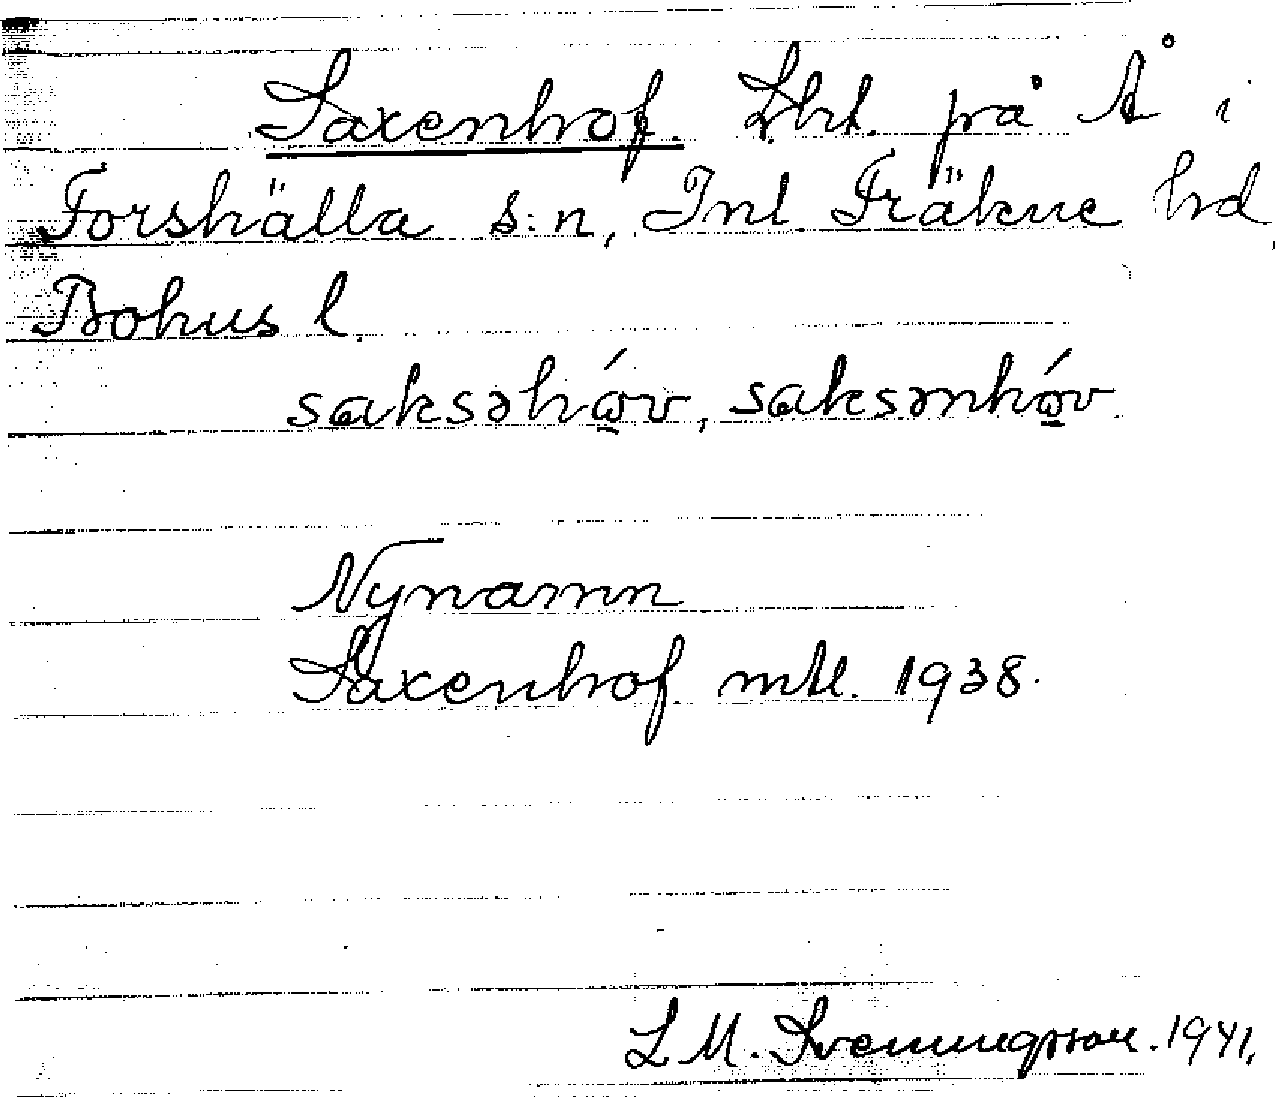 Saxenhof. Lht. på Å i
Forshälla s:n, Inl. Fräkne hd,
Bohus l.
saksəhǫ́v, saksənhǫ́v.
Nynamn
Saxenhof mtl. 1938.
L M. Svenningsson. 1941.